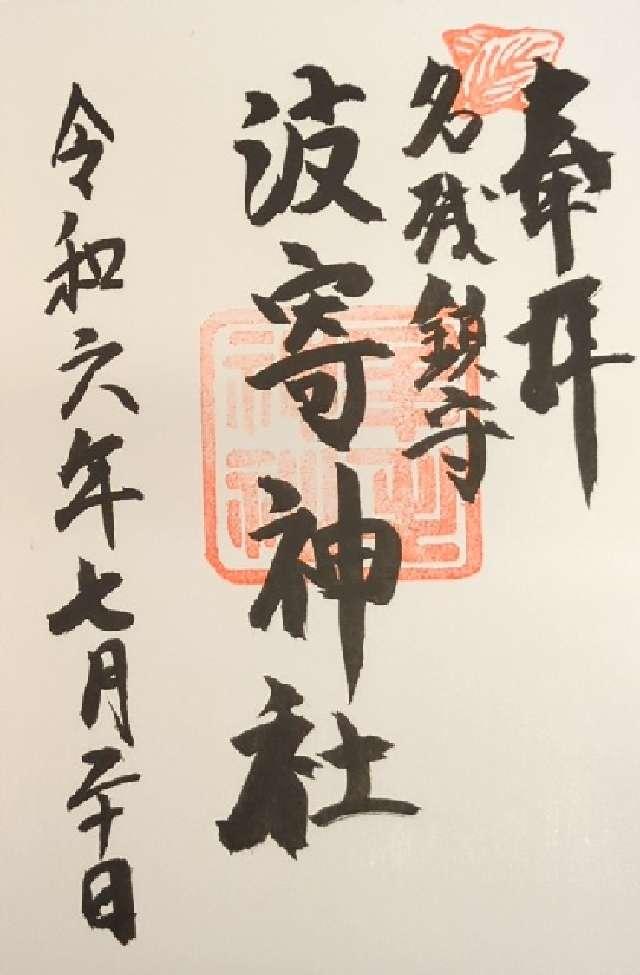 奉拝
名残鎮守
波寄神社
令和六年七月二十日